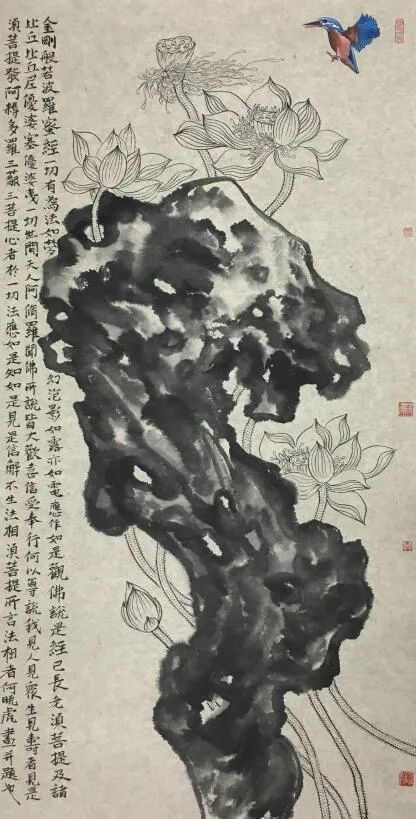 金剛般若波羅蜜經一切有為法如夢幻泡影如露亦如電應作如是觀佛說是經已長老湏菩提及諸
比丘比丘尼優婆塞優婆夷一切世間天人阿脩羅聞佛所說皆大歡喜信受奉行何以尊說我見人見眾生見壽者見是
湏菩提發阿耨多羅三藐三菩提心者於一切法應如是知如是見是信解不生法相湏菩提所言法相者何暁虎畫并題也